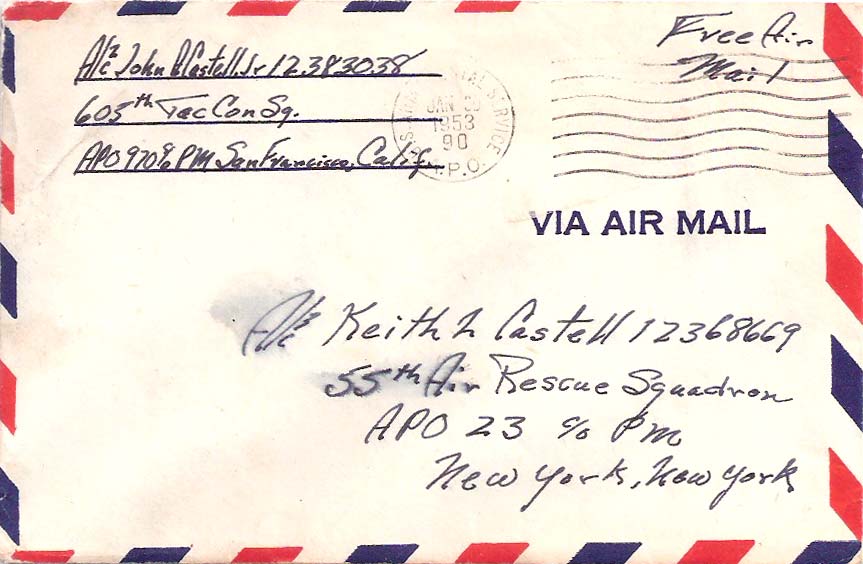 A/2c John R Castell, Jr 12383038
605th Tac Con Sq.
APO 970 c/o PM San Francisco, Calif.
POSTAL SERVICE
JAN
1953
90
A.P.O.
Free Air
Mail
VIA AIR MAIL
A/2c Keith L Castell 12368669
55th Air Rescue Squadron
APO 23 c/o PM
New York, New York